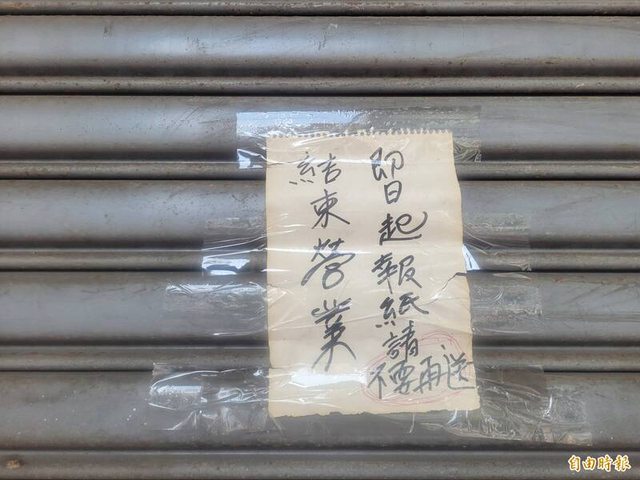 即日起報紙請
不要再送
結束營業
自由時報